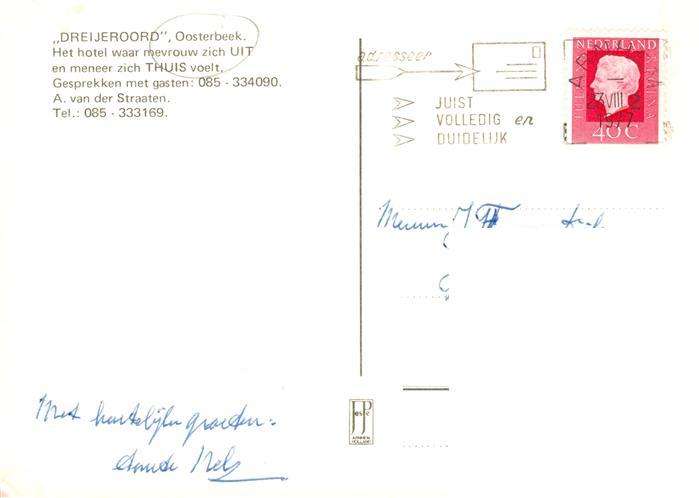 „DREIJEROORD”, Oosterbeek.
Het hotel waar mevrouw zich UIT
en meneer zich THUIS voelt.
Gesprekken met gasten: 085 - 334090.
A. van der Straaten.
Tel.: 085 - 333169.
adresseer
JUIST
VOLLEDIG en
DUIDELIJK
NEDERLAND
JULIANA REGINA
23 VIII
1977
40c
JosPé
ARNHEM
HOLLAND
Met hartelijke groeten.